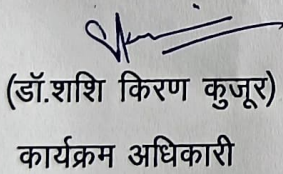 (डॉ.शशि किरण कुजूर)
कार्यक्रम अधिकारी